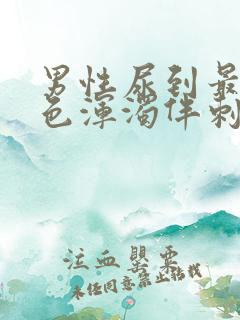 男性尿到最
色浑浊伴刺
泣血罂粟
未经同意禁止转载